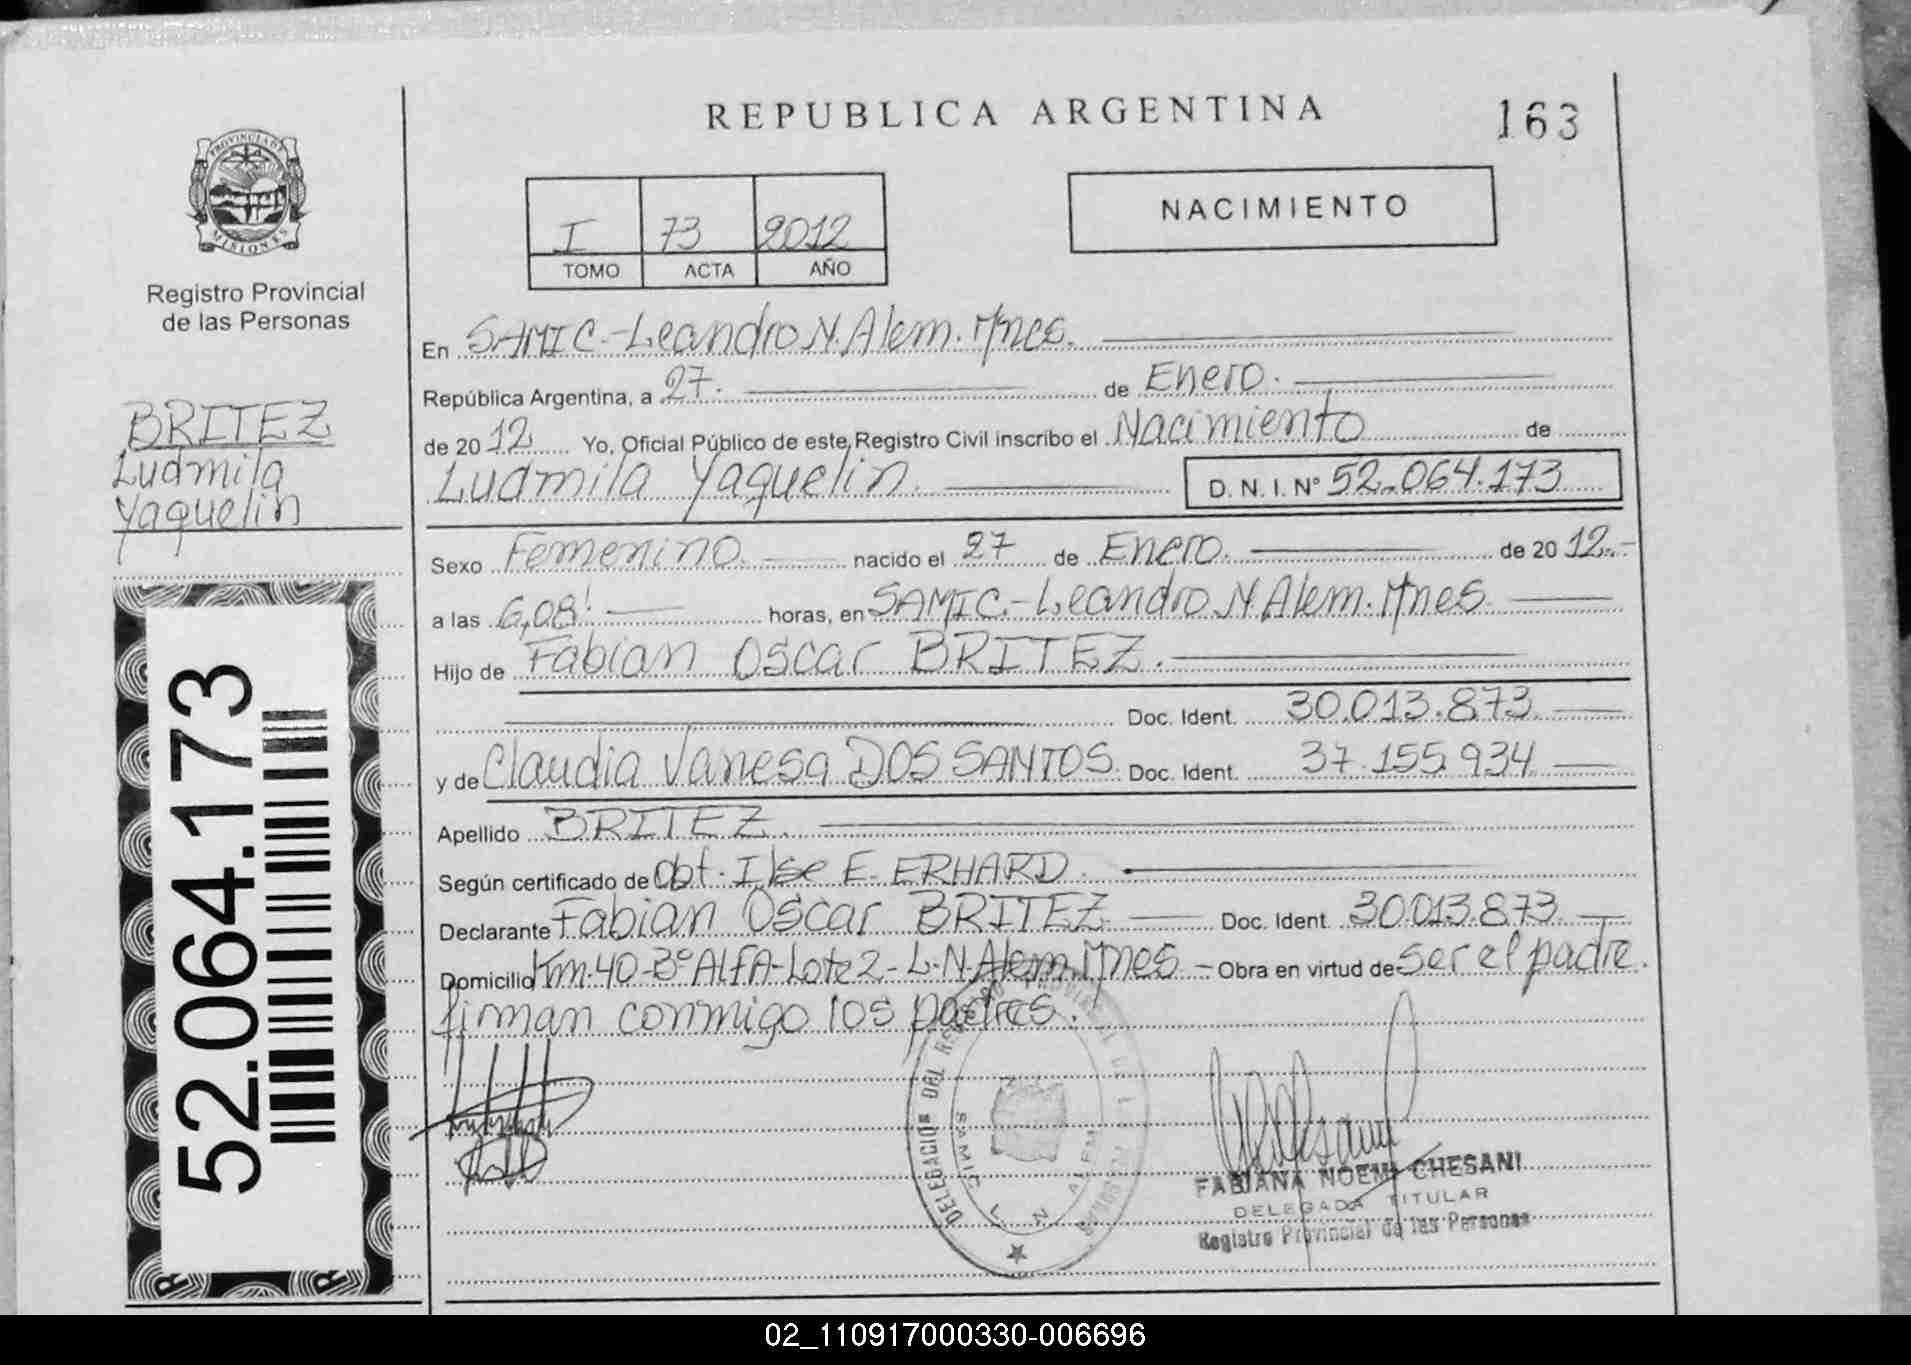 REPUBLICA ARGENTINA
163
PROVINCIA DE MISIONES
Registro Provincial
de las Personas
I 73 2012
TOMO ACTA AÑO
NACIMIENTO
BRITEZ
Ludmila
Yaquelin
52.064.173
En SAMIC-Leandro N. Alem. Mnes.
República Argentina, a 27. de Enero.
de 2012 Yo, Oficial Público de este Registro Civil inscribo el Nacimiento de
Ludmila Yaquelin. D.N.I. Nº 52.064.173
Sexo Femenino. nacido el 27 de Enero. de 2012.-
a las 6,08! horas, en SAMIC.-Leandro N. Alem. Mnes.
Hijo de Fabian Oscar BRITEZ.
Doc. Ident. 30.013.873
y de Claudia Vanesa DOS SANTOS. Doc. Ident. 37.155.934
Apellido BRITEZ.
Según certificado de Obt. Ilse E. ERHARD.
Declarante Fabian Oscar BRITEZ Doc. Ident. 30.013.873
Domicilio Km.40-Bº ALFA-Lote 2-L.N.Alem.Mnes - Obra en virtud de ser el padre.
firman conmigo los padres.
DELEGACION DEL REGISTRO PROVINCIAL DE LAS PERSONAS
SAMIC L N ALEM
FABIANA NOEMI CHESANI
DELEGADA TITULAR
Registro Provincial de las Personas
02_110917000330-006696